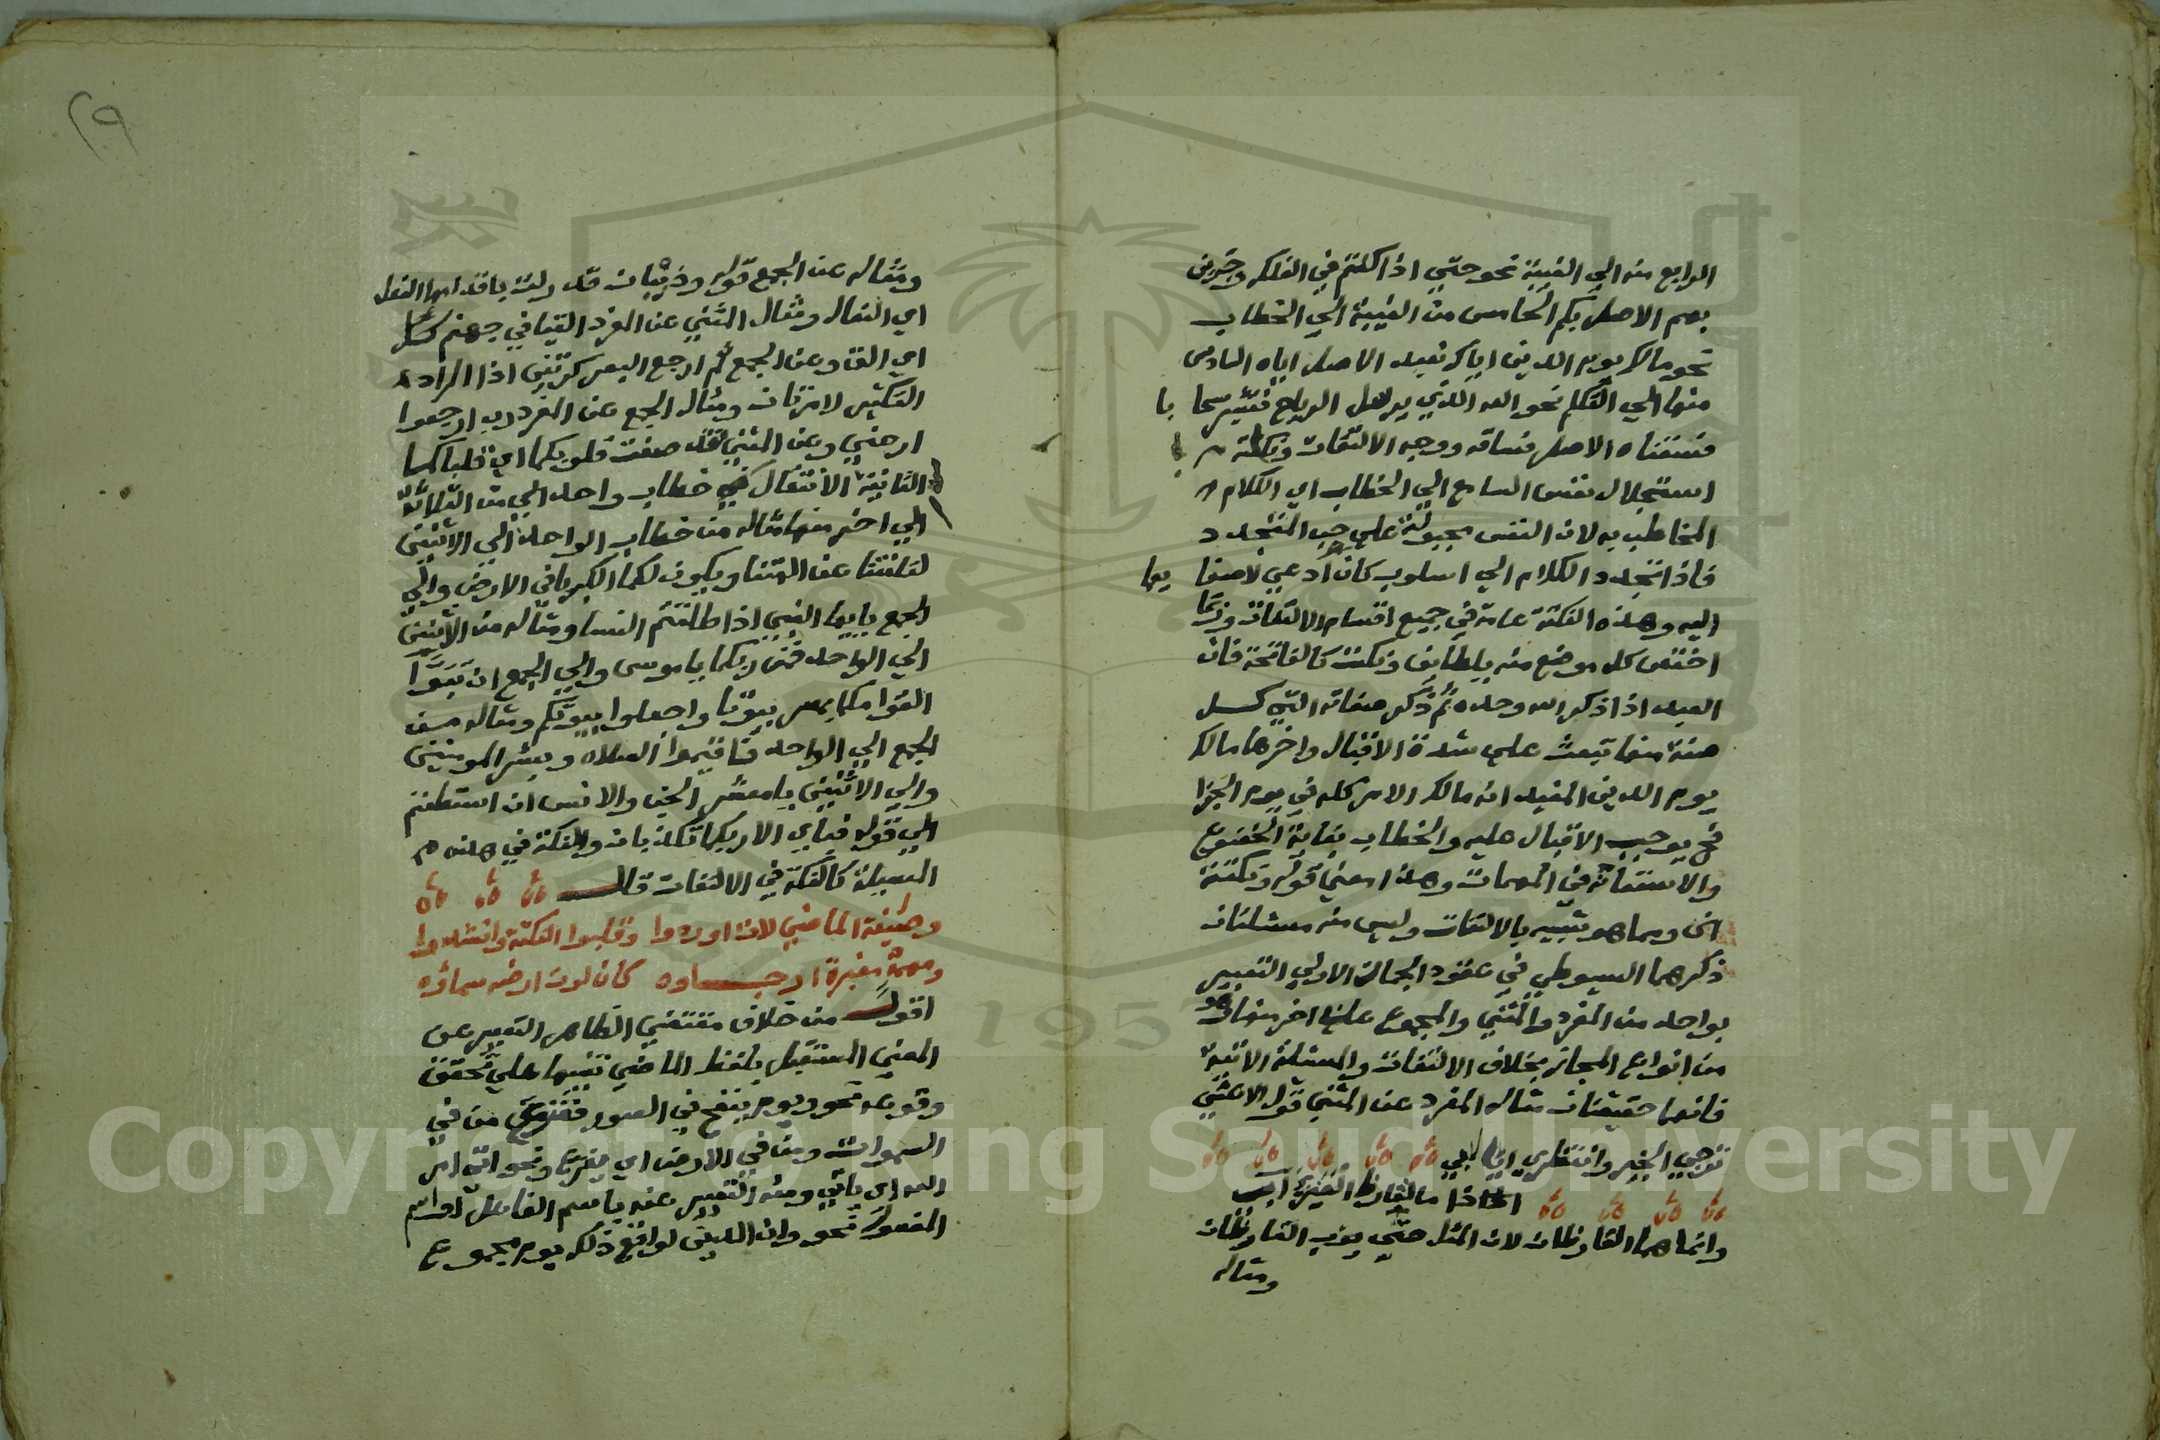 الرابع منه الي الغيبة نحو حتي اذا كنتم في الفلك وجرين
بهم الاصل بكم الخامس من الغيبة الي الخطاب
نحو مالك يوم الدين اياك نعبد الاصل اياه السادس
منها الي التكلم نحو الله الذي يرسل الرياح فتثير سحابا
فسقناه الاصل فساقه ووجه الالتفات ونكتته
استجلاب نفس السامع الي الخطاب اي الكلام
المخاطب به لان النفس مجبولة علي حب المتجدد
فاذا تجدد الكلام الي اسلوب كان ادعي لاصغايها
اليه وهذه النكتة عامة في جميع اقسام الالتفات وربما
اختص كل موضع منه بلطايف ونكت كالفاتحة فان
العبد اذا ذكر الله وحده ثم ذكر صفاته التي كل
صفة منها تبعث علي شدة الاقبال واخرها مالك
يوم الدين المفيد انه مالك الامر كله في يوم الجزا
فح يوجب الاقبال عليه والخطاب بغاية الخضوع
والاستعانة في المهمات وهذا معني قوله ونكتة
الخ ومما هو شبيه بالالتفات وليس منه مسئلتان
ذكرهما السيوطي في عقود الجمان الاولي التعبير
بواحد من المفرد والمثني والمجموع عن اخر منها وهو
من انواع المجاز بخلاف الالتفات والمسئلة الاتية
فانهما حقيقتان مثال المفرد عن المثني قول الاعشي
ترجي الخير وانتظري ايابي
اذا ما القارظ العنزي آب
وانما هما القارظان لان المثل حتي يؤب القارظان
ومثاله
٢٩
ومثاله عن الجمع قوله وذبيان قد زلت باقدامها النعل
اي النعال ومثال المثني عن المفرد القيا في جهنم كل
اي الق وعن الجمع ثم ارجع البصر كرتين اذ المراد
التكثير لا مرتان ومثال الجمع عن المفرد رب ارجعون
ارجعني وعن المثني فقد صغت قلوبكما اي قلباكما
الثانية الانتقال من خطاب واحد من الثلاثة
الي اخر منها مثاله من خطاب الواحد الي الاثنين
لتلفتنا عن ويكون لكما الكبريا في الارض والي
الجمع يا ايها النبي اذا طلقتم النسا ومثاله من الاثنين
الي الواحد فمن ربكما يا موسي والي الجمع ان تبوا
لقومكما بمصر بيوتا واجعلوا بيوتكم ومثاله من
الجمع الي الواحد واقيموا الصلاة وبشر المومنين
والي الاثنين يا معشر الجن والانس ان استطعتم
الي قوله فباي الا ربكما تكذبان والنكتة في هذه
المسئلة كالنكتة في الالتفات قال
وصيغة الماضي لات اوردوا وقلبوا لنكتة وانشدوا
ومهمه مغبرة ارجاوه كان لون ارضه سماؤه
اقول من خلاف مقتضي الظاهر التعبير عن
المعني المستقبل بلفظ الماضي تنبيها علي تحقق
وقوعه نحو ويوم ينفخ في الصور ففزع من في
السموات ومن في الارض اي يفزع ونحو اتي امر
الله اي ياتي ومنه التعبير عنه باسم الفاعل او اسم
المفعول نحو وان الدين لواقع ذلك يوم مجموع